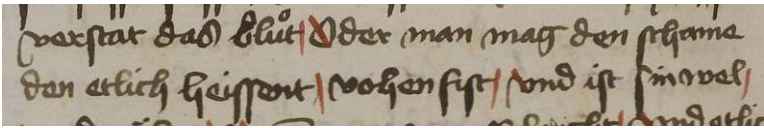 verstat das blůt Oder man mag den schame
den etlich heissent vohenfist vnd ist sinwel